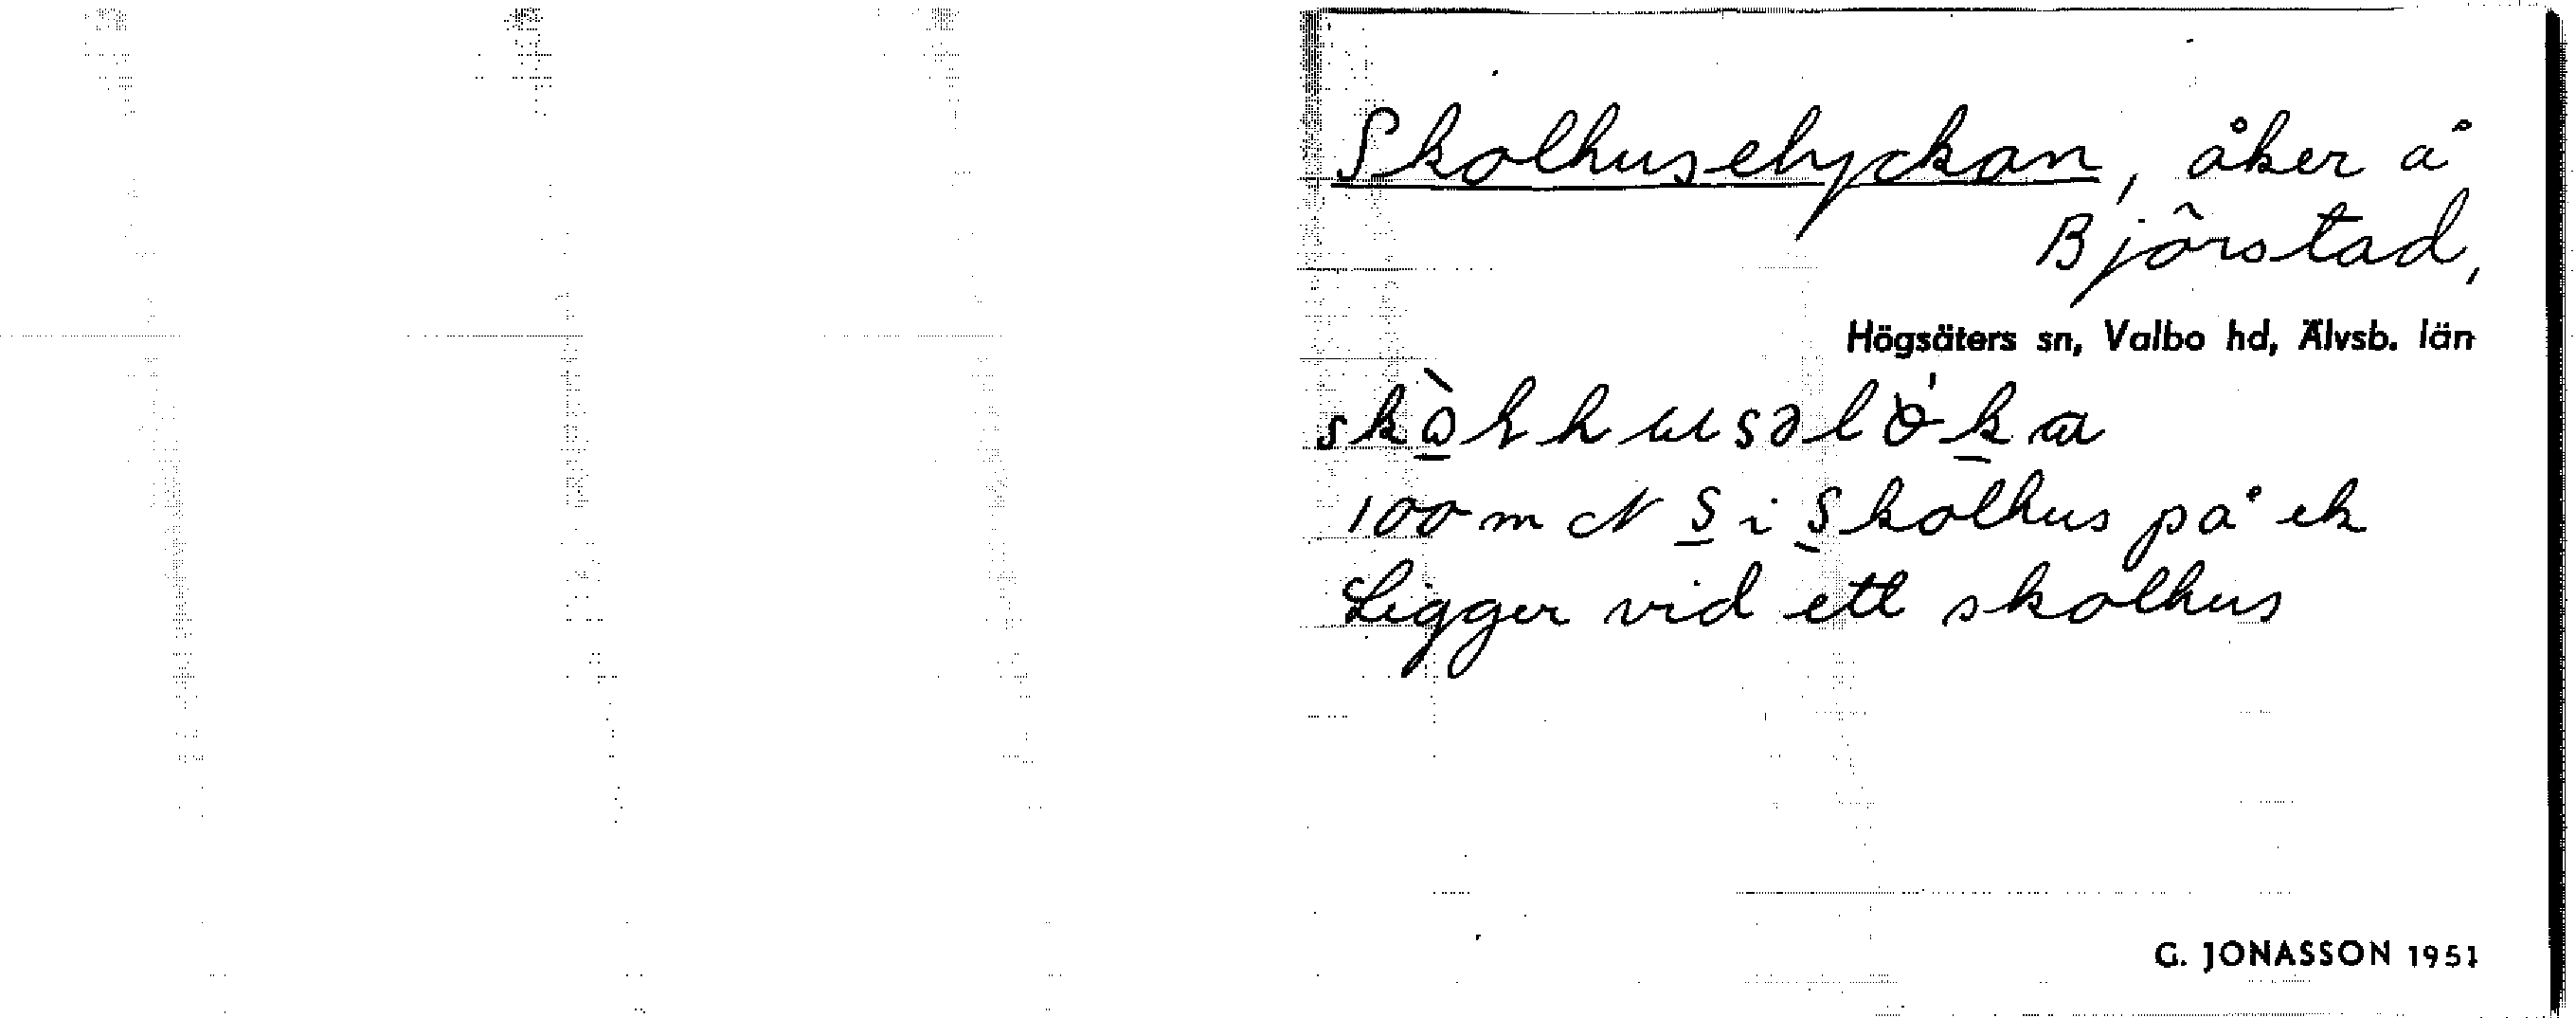 Skolhuselyckan, åker å
Björstad,
Högsäters sn, Valbo hd, Älvsb. län
100 m N S i Skolhus på ek
Ligger vid ett skolhus
G. JONASSON 1951